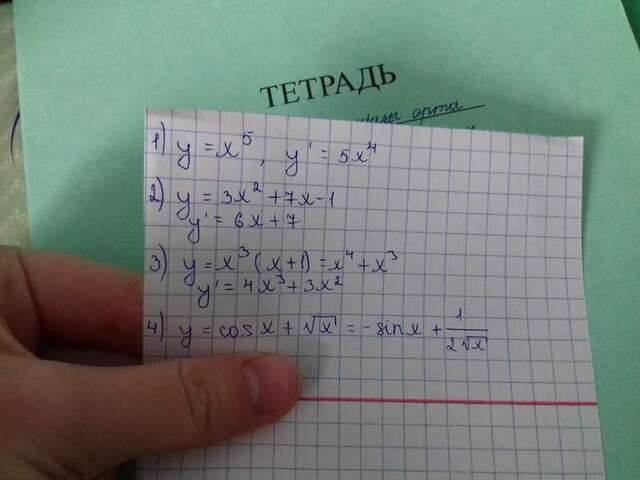 1) y = x⁵, y' = 5x⁴
2) y = 3x² + 7x - 1
y' = 6x + 7
3) y = x³(x+1) = x⁴ + x³
y' = 4x³ + 3x²
4) y = cos x + √x = - sin x + 1/(2√x)
ТЕТРАДЬ